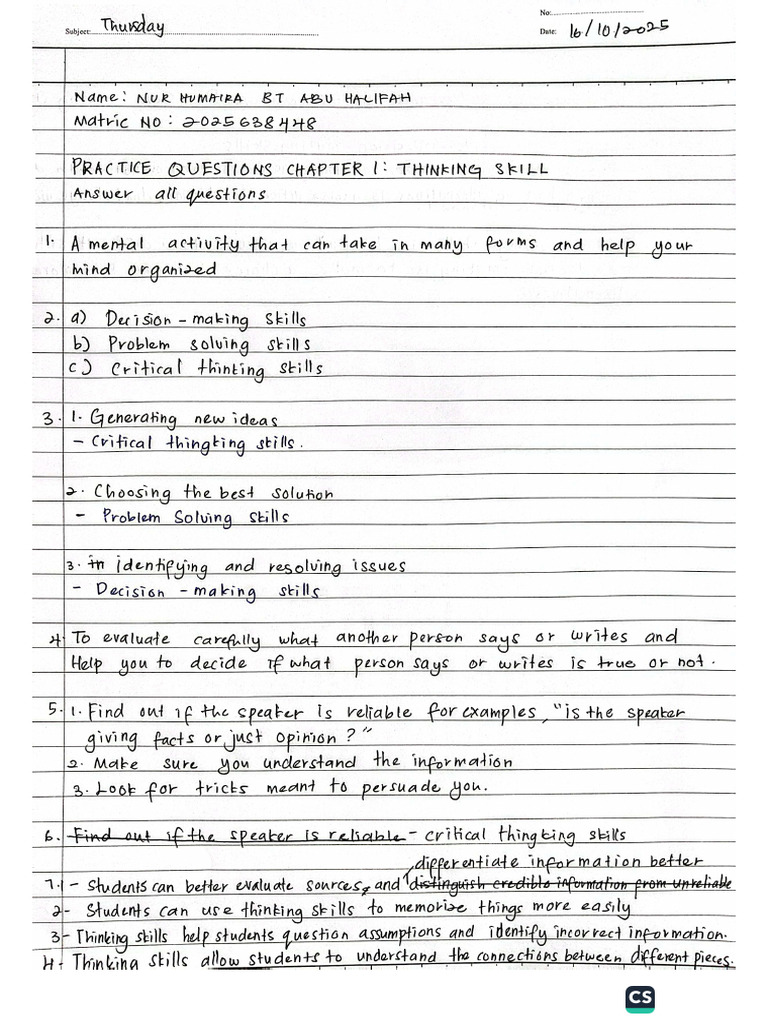 No:
Subject: Thursday
Date: 16/10/2025
Name: NUR HUMAIRA BT ABU HALIFAH
Matric NO: 2025638448
PRACTICE QUESTIONS CHAPTER 1: THINKING SKILL
Answer all questions
1. A mental activity that can take in many forms and help your
mind organized
2. a) Decision-making skills
b) Problem solving skills
c) Critical thinking skills
3. 1. Generating new ideas
- Critical thingking skills.
2. Choosing the best solution
- Problem Solving skills
3. in identifying and resolving issues
- Decision-making skills
4 To evaluate carefully what another person says or writes and
Help you to decide if what person says or writes is true or not.
5. 1. Find out if the speaker is reliable for examples, "is the speaker
giving facts or just opinion?"
2. Make sure you understand the information
3. Look for tricks meant to persuade you.
6. Find out if the speaker is reliable - critical thingking skills
differentiate information better
7.1 - Students can better evaluate sources, and distinguish credible information from unreliable
2- Students can use thinking skills to memorize things more easily
3- Thinking skills help students question assumptions and identify incorrect information.
4- Thinking skills allow students to understand the connections between different pieces.
CS